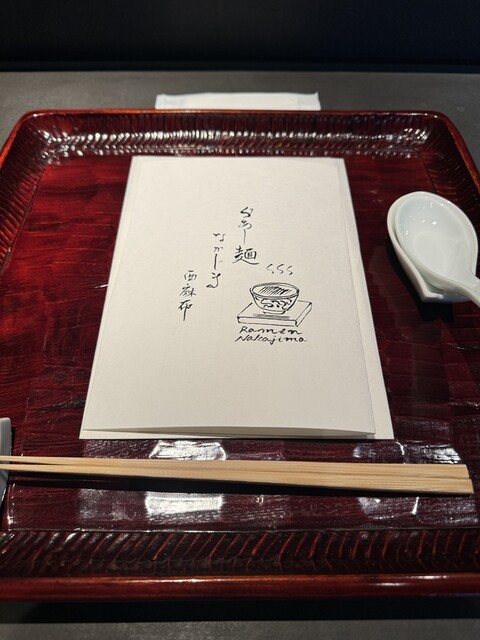 らぁ〜麺
なかじま
西麻布
Ramen
Nakajima